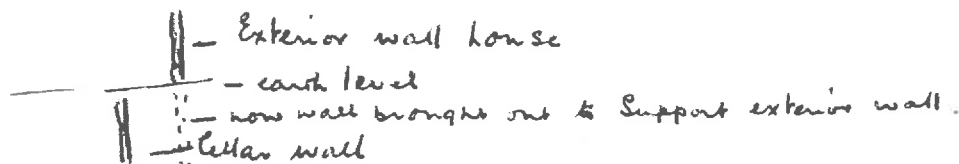 Exterior wall house
earth level
now wall brought out to Support exterior wall.
Cellar wall